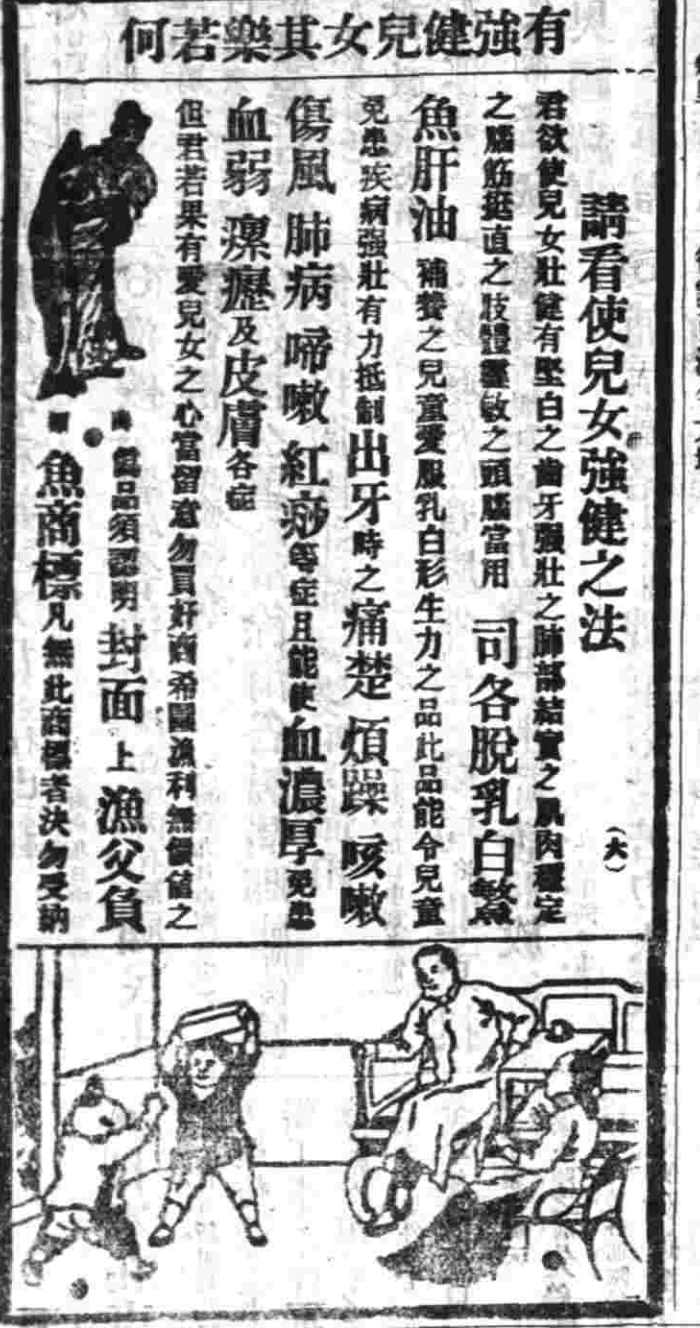 有強健兒女其樂若何
請看使兒女強健之法 (六)
君欲使兒女壯健有堅白之齒牙强壯之肺部結實之肌肉穩定
之腦筋挺直之肢體靈敏之頭腦當用 司各脫乳白鰵
魚肝油 補贊之兒童愛服乳白形生力之品此品能令兒童
免患疾病强壯有力抵制出牙時之痛楚 煩躁 咳嗽
傷風 肺病 啼嗽 紅痧等症且能使血濃厚免患
血弱 瘰癧及皮膚各症
但君若果有愛兒女之心當留意勿買奸商希圖漁利無價值之
品須認明 封面 上 漁父負
魚商標凡無此商標者決勿受納